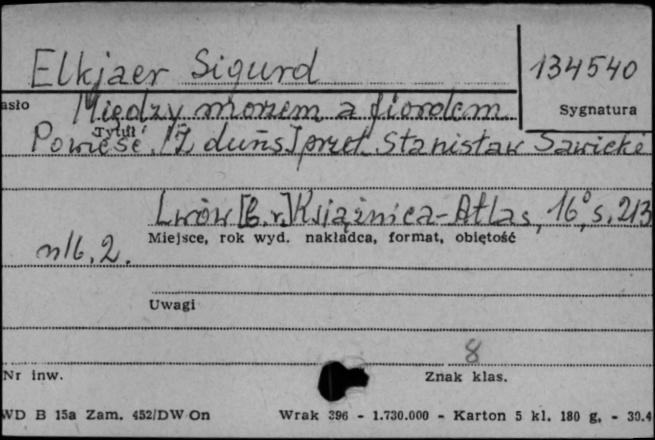 Elkjaer Sigurd
134540
asło
Między morzem a fiordem
Sygnatura
Tytuł
Powieść. [Z duńs] przeł. Stanisław Sawicki
Lwów [b.r.] Książnica-Atlas, 16°, s. 213
nlb. 2.
Miejsce, rok wyd. nakładca, format, objętość
Uwagi
8
Nr inw.
Znak klas.
WD B 15a Zam. 452/DW On
Wrak 396 - 1.730.000 - Karton 5 kl. 180 g. - 30.4